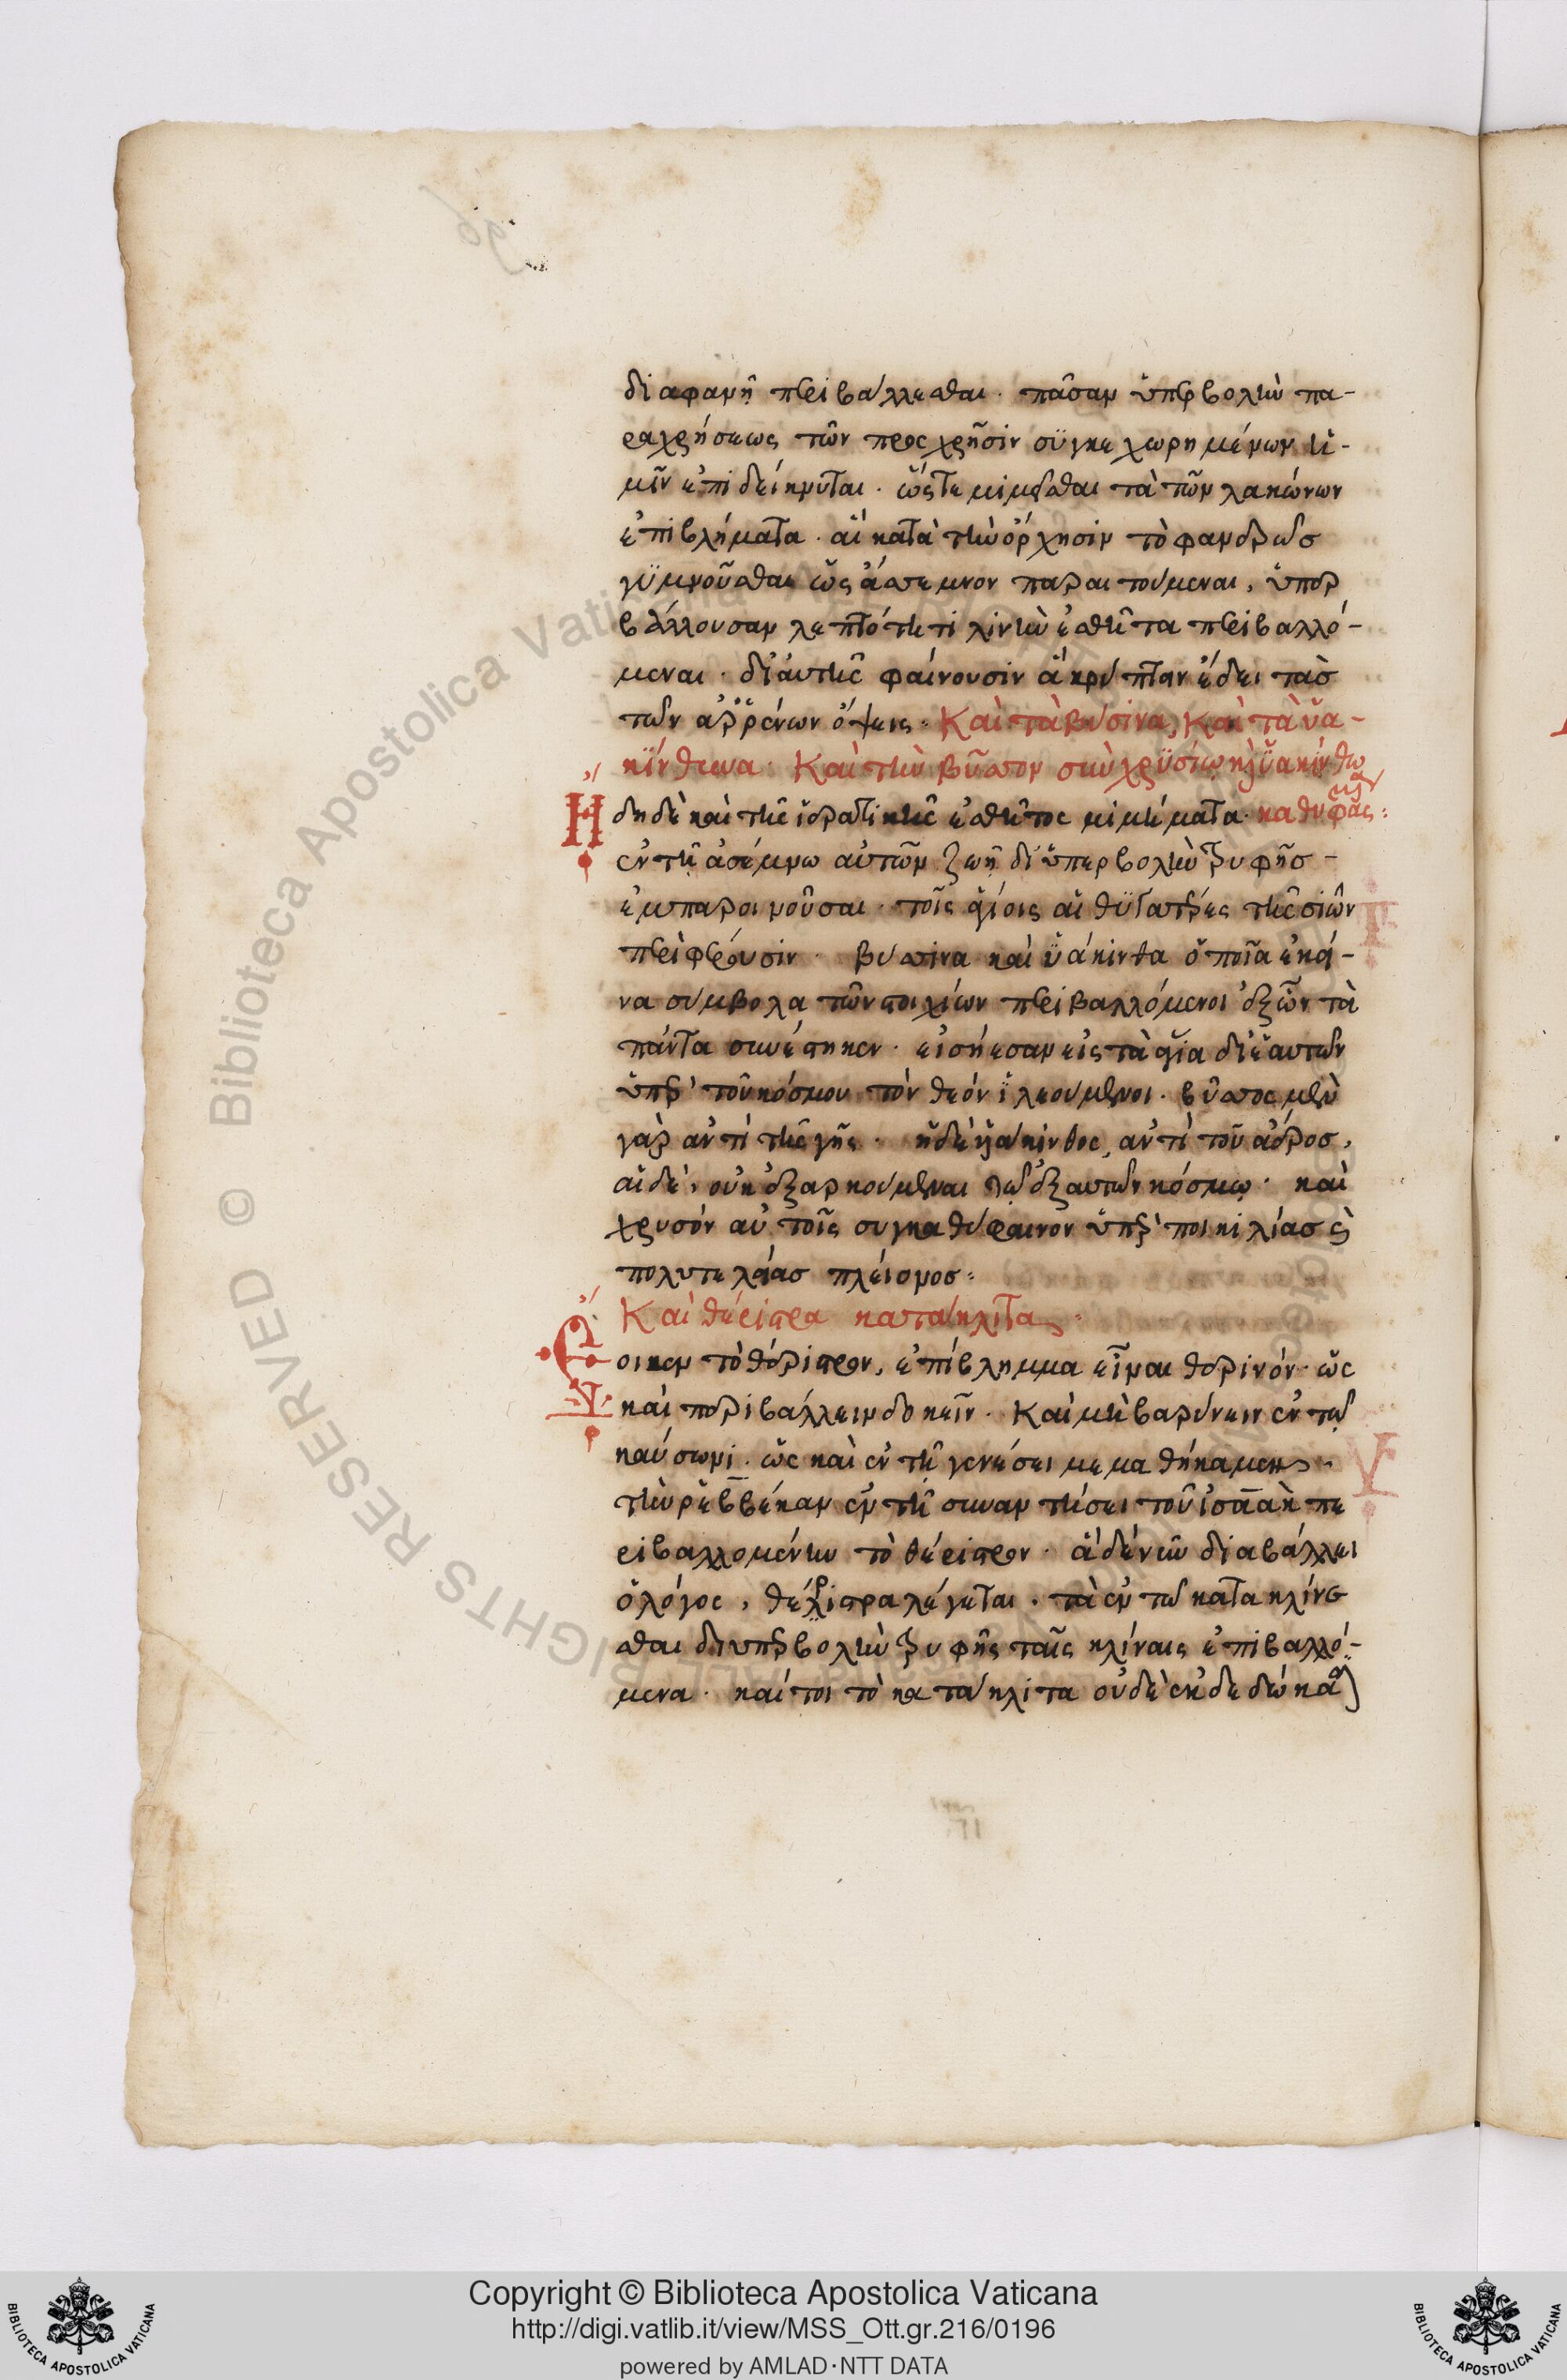 διαφανῆ περιβάλλεσθαι· πᾶσαν ὑπερβολὴν πα-
ραχρήσεως τῶν προς χρῆσιν συγκεχωρημένων ἡ-
μῖν ἐπιδείκνυται· ὥςτε μιμεῖσθαι τὰ τῶν λακώνων
ἐπιβλήματα· αἳ κατὰ τὴν ὄρχησιν τὸ φανερῶσ
γυμνοῦσθαι ὡς ἄσεμνον παραιτούμεναι, ὑπερ
βάλλουσαν λεπτότητι λινὴν ἐσθῆτα περιβαλλό-
μεναι· δι αὐτῆς φαίνουσιν ἃ κρύπταν ἔδει τὰσ
τῶν ἀῤῥένων ὄψεις· Καὶ τὰ βύσινα, Καὶ τὰ ὑα-
κίνθινα· Καὶ τὴν βύσσον σὺν χρυσίω κὶ ὑακίνθω
Ἤδη δὲ καὶ τῆς ἱερατικῆς ἐσθῆτος μιμήματα· καθυφασμένα:
ἐν τῇ ἀσέμνω αὐτῶν ζωῇ δι ὑπερβολὴν τρυφῆσ -
ἐμπαροινοῦσαι· τοῖς ἁγίοις αἱ θυγατέρες τῆς σιὼν
περιφέρουσιν· Βύσσινα καὶ ὑάκινθα ὁποῖα ἐκεῖ-
να σύμβολα τῶν στοιχείων περιβαλλόμενοι ἐξ ὧν τὰ
πάντα συνέστηκεν· εἰσήεσαν εἰς τὰ ἅγια δι ἑαυτῶν
ὑπὲρ τοῦ κόσμου τὸν θεὸν ἱλεούμενοι· βύσσος μὲν
γὰρ ἀντὶ τῆς γῆς· ἡ δὲ ὑάκινθος, ἀντὶ τοῦ ἀέρος,
αἱ δὲ, οὐκ ἐξαρκούμεναι τῶ ἐξ αὐτῶν κόσμω· καὶ
χρυσὸν αὐτοῖς συγκαθύφαινον ὑπὲρ ποικιλίασ κὶ
πολυτελείασ πλείονος·
Καὶ θέριστρα κατάκλιτα·
Ἔοικεν τὸ θέριστρον, ἐπίβλημμα εἶναι θερινόν· ὡς
καὶ περιβάλλειν δοκεῖν· Καὶ μὴ βαρύνειν ἐν τῶ
καύσωνι· ὡς καὶ ἐν τῇ γενέσει μεμαθήκαμεν·
τὴν ῥεββέκαν ἐν τῇ συναντήσει τοῦ ἰσαὰκ πε
ριβαλλομένην τὸ θέριστρον· ἃ δὲ νῦν διαβάλλει
ὁ λόγος, θέριστρα λέγεται· τὰ ἐν τῶ κατακλίνε
σθαι δι υπερβολὴν τρυφῆς ταῖς κλίναις ἐπιβαλλό-
μενα· καίτοι τὸ κατάκλιτα οὐδὲ ἐκδεδώκα
Copyright © Biblioteca Apostolica Vaticana
http://digi.vatlib.it/view/MSS_Ott.gr.216/0196
powered by AMLAD·NTT DATA
BIBLIOTECA APOSTOLICA VATICANA
BIBLIOTECA APOSTOLICA VATICANA